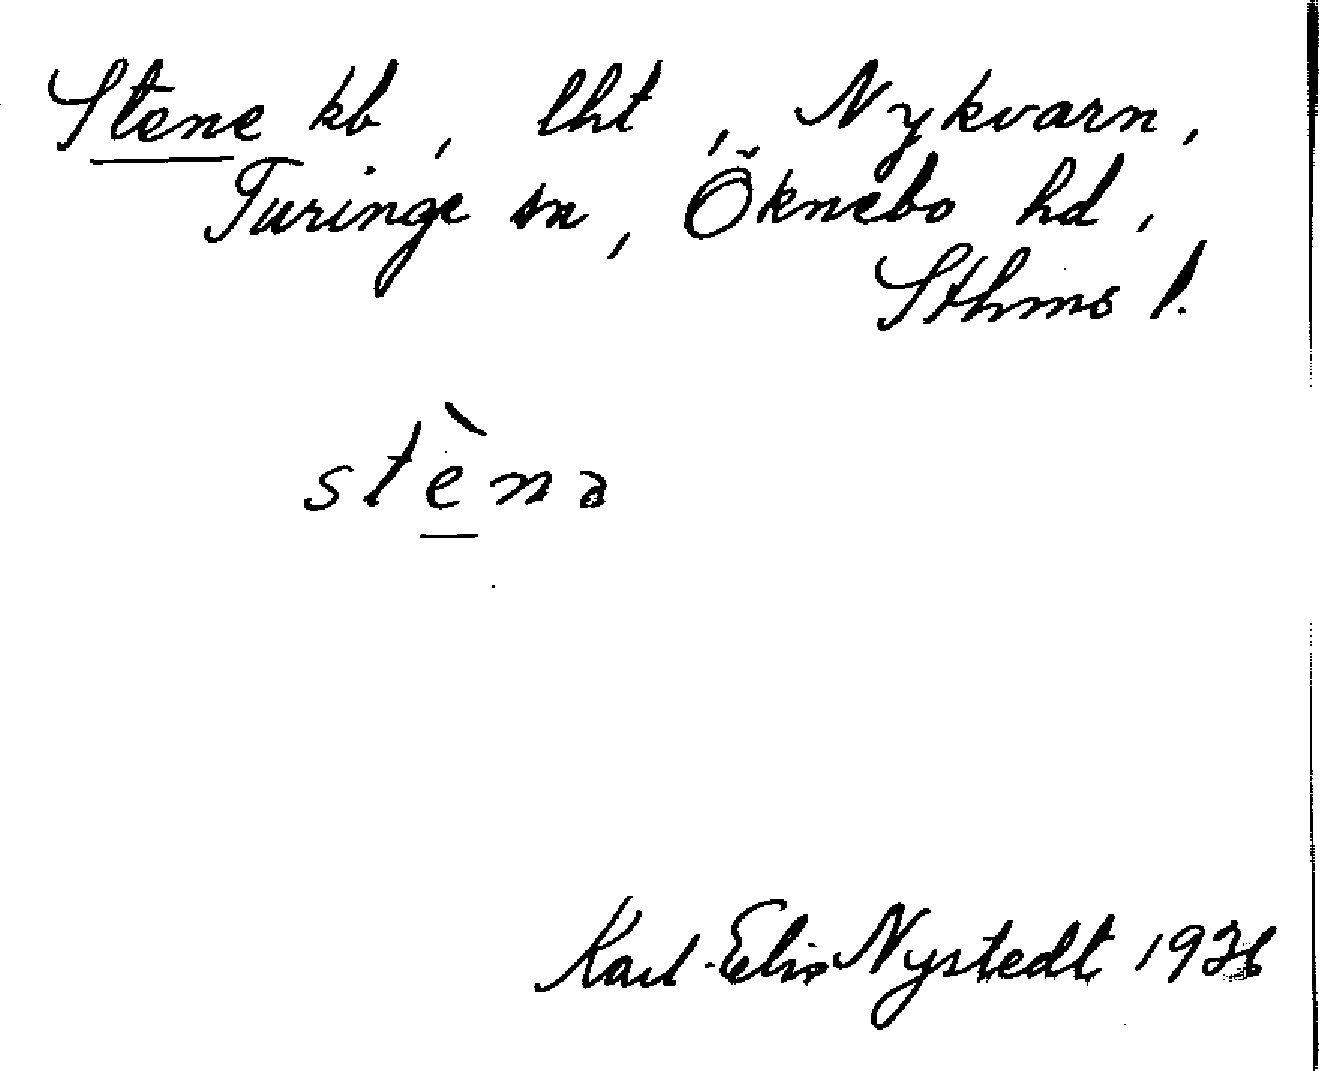 Stene kb, lht, Nykvarn,
Turinge sn, Öknebo hd,
Sthms l.
stèna
Karl-Elis Nystedt 1936